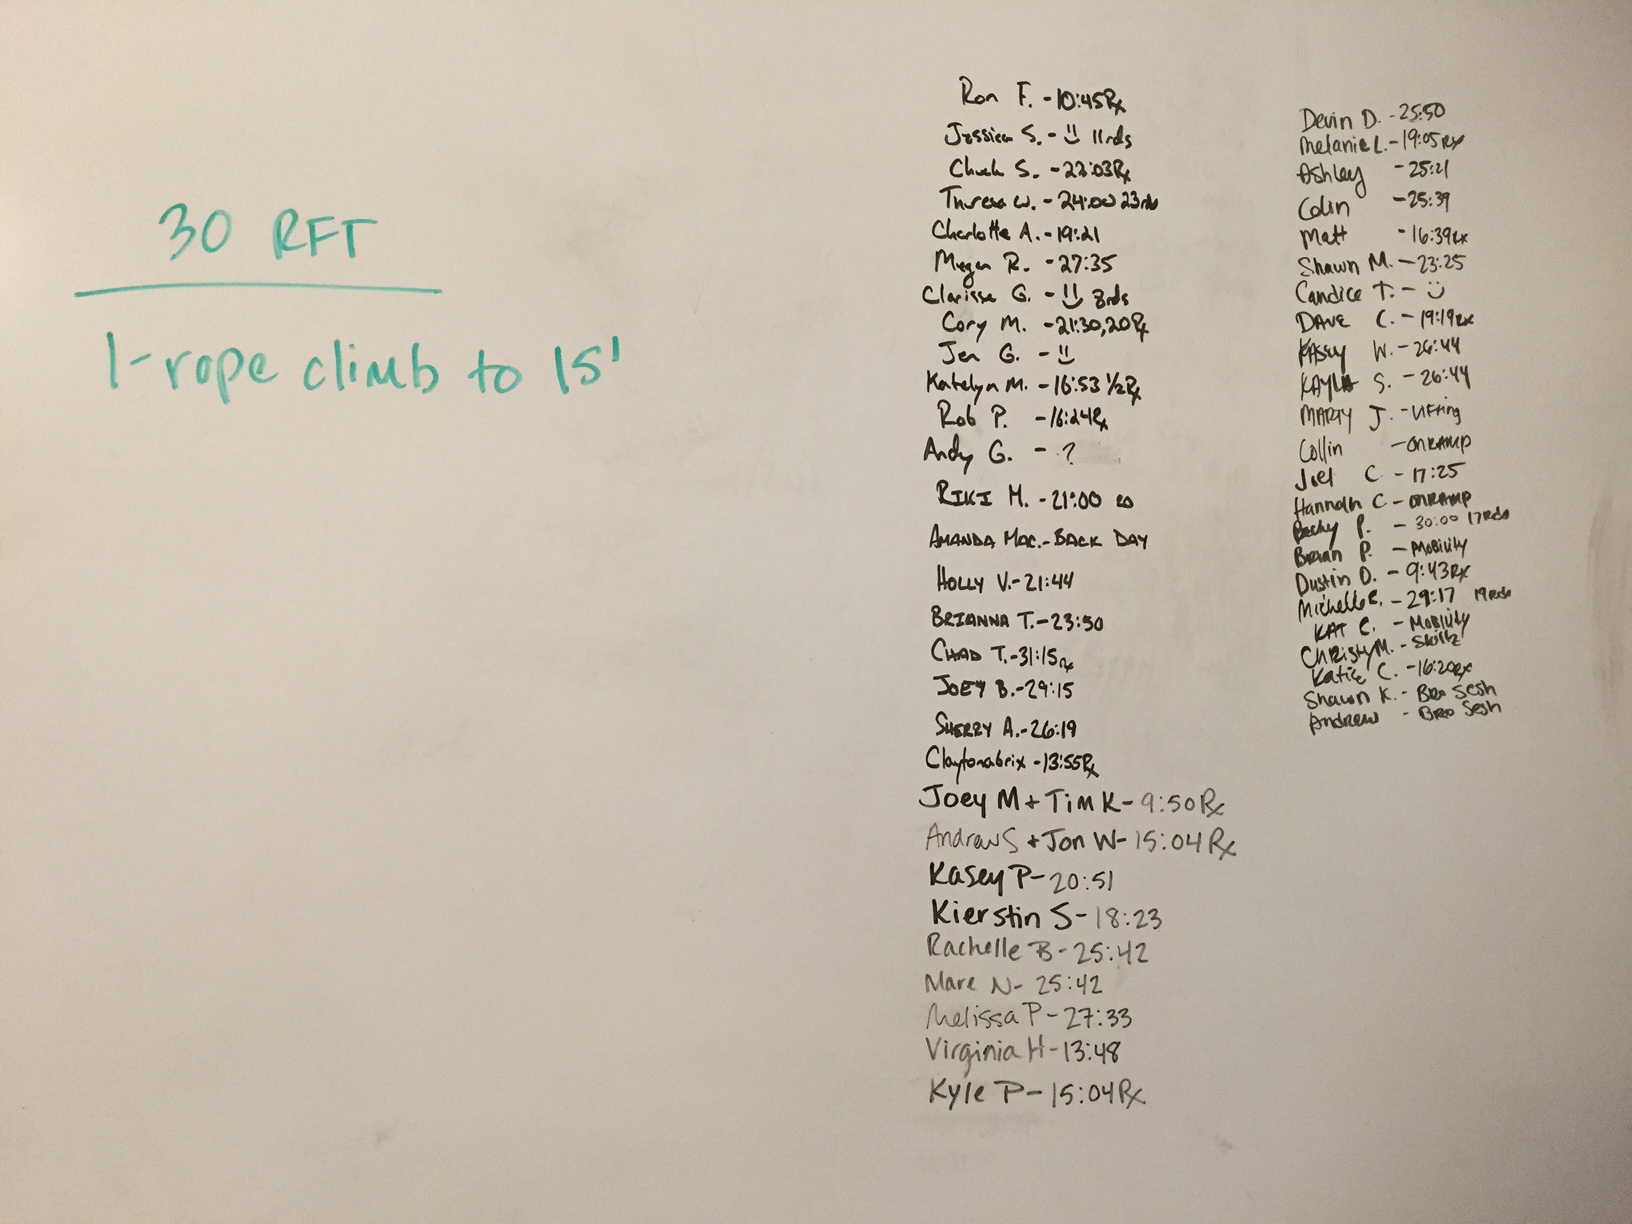 30 RFT
1-rope climb to 15'
Ron F. - 10:45 Rx
Jessica S. - 11rds
Chuck S. - 22:03 Rx
Theresa W. - 24:00 23rds
Charlotte A. - 19:21
Megan R. - 27:35
Clarissa G. - 8rds
Cory M. - 21:30, 20 Rx
Jen G. -
Katelyn M. - 16:53 1/2 Rx
Rob P. - 16:24 Rx
Andy G. - ?
RIKI M. - 21:00 20
AMANDA MAC. - BACK DAY
HOLLY V. - 21:44
BRIANNA T. - 23:50
CHAD T. - 31:15 Rx
JOEY B. - 29:15
SHERRY A. - 26:19
Claytonabrix - 13:55 Rx
Joey M + Tim K - 9:50 Rx
Andrew S + Jon W - 15:04 Rx
Kasey P - 20:51
Kierstin S - 18:23
Rachelle B - 25:42
Mare N - 25:42
Melissa P - 27:33
Virginia H - 13:48
Kyle P - 15:04 Rx
Devin D. - 25:50
Melanie L. - 19:05 Rx
Ashley - 25:21
Colin - 25:39
Matt - 16:39 Rx
Shawn M. - 23:25
Candice T. -
DAVE C. - 19:19 Rx
KASEY W. - 26:44
KAYLA S. - 26:44
MARTY J. - Lifting
Collin - ONRAMP
Joel C - 17:25
Hannah C - ONRAMP
Becky P. - 30:00 17rds
Brian P. - Mobility
Dustin D. - 9:43 Rx
Michelle E. - 29:17 19rds
KAT C. - Mobility
Christy M. - Skillz
Katie C. - 16:20 Rx
Shawn K. - Bro Sesh
Andrew - Bro Sesh